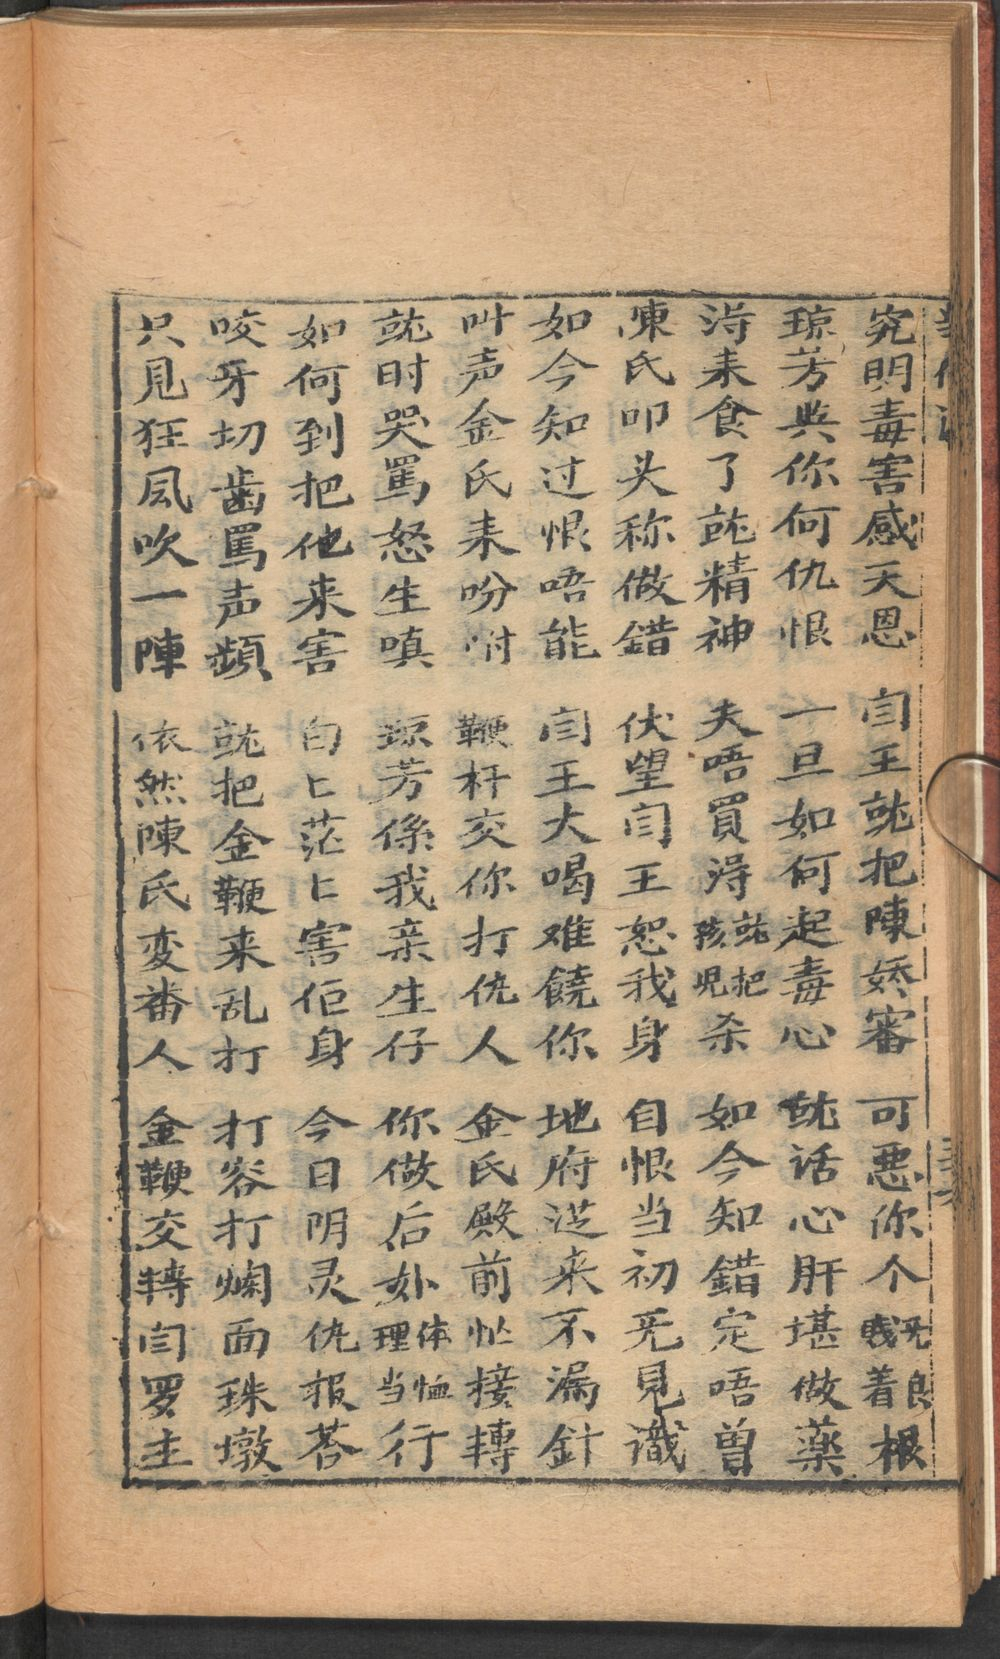 究明毒害感天恩 闫王就把陳娇審 可恶你个无良戝着根
琼芳與你何仇恨 一旦如何起毒心 就话心肝堪做藥
淂耒食了就精神 夫唔買淂就把孩児杀 如今知錯定唔曽
陳氏叩头称做錯 伏望闫王恕我身 自恨当初旡見識
如今知过恨唔能 闫王大喝难饒你 地府従来不漏針
叫声金氏耒吩咐 鞭杆交你打仇人 金氏殿前忙接轉
就时哭罵怒生嗔 琼芳係我亲生仔 你做后外体恤理当行
如何到把他来害 白匕茫匕害佢身 今日阴灵仇报荅
咬牙切歯罵声頻 就把金鞭来乱打 打容打爛面珠墩
只見狂凨吹一陣 依然陳氏变番人 金鞭交轉闫罗主